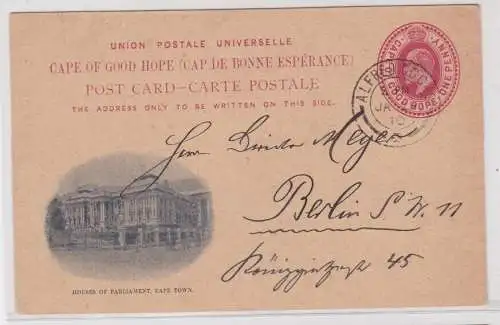 UNION POSTALE UNIVERSELLE
CAPE OF GOOD HOPE (CAP DE BONNE ESPÉRANCE)
POST CARD–CARTE POSTALE
THE ADDRESS ONLY TO BE WRITTEN ON THIS SIDE.
GOOD HOPE. ONE PENNY
ALFRED
JA
10
Herrn Direktor Meyer
Berlin S.W. 11
45
HOUSES OF PARLIAMENT, CAPE TOWN.